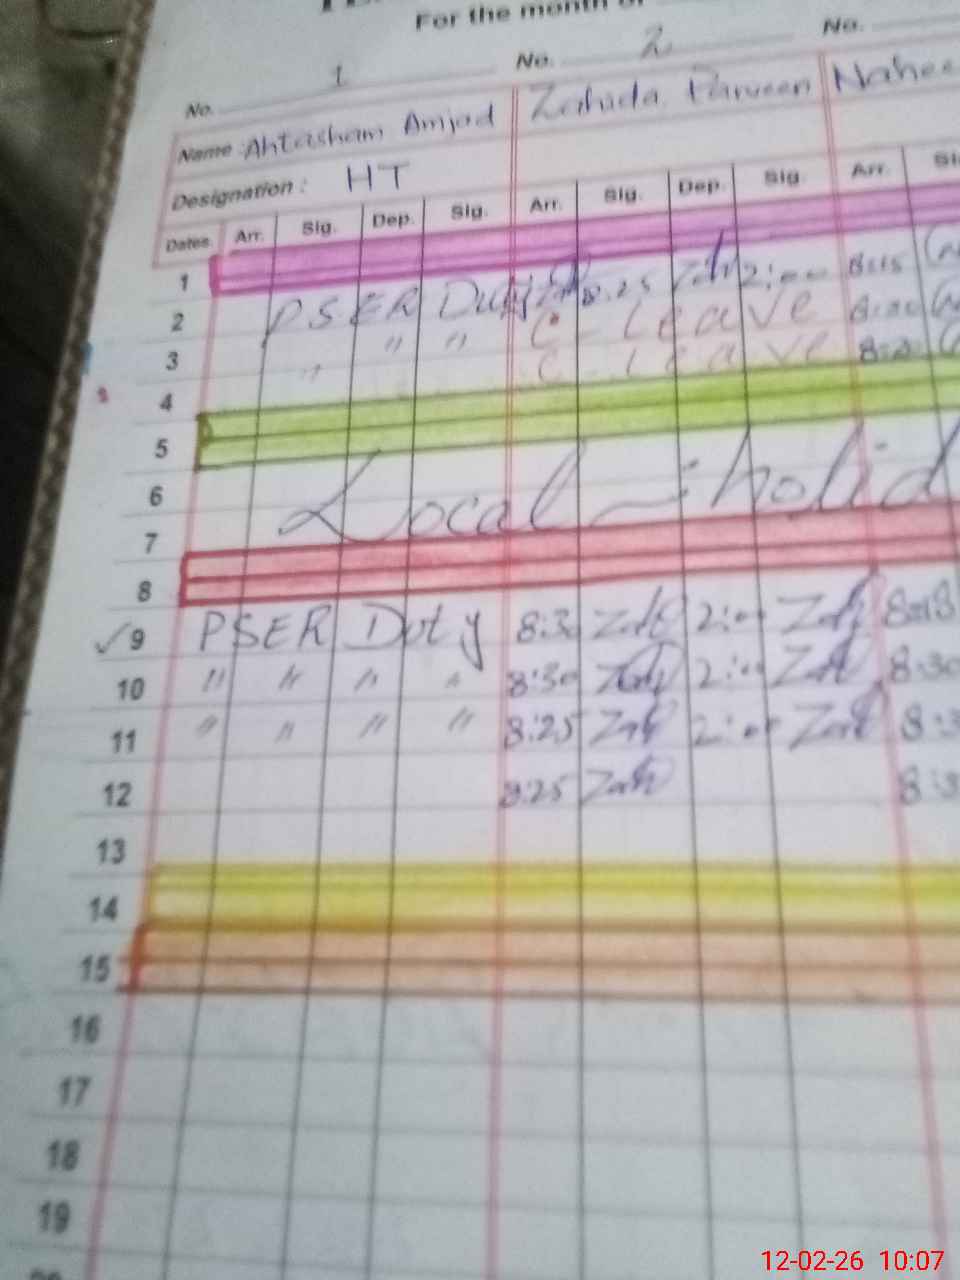 For the month of
No. 1 No. 2 No.
Name : Ahtasham Amjad Zahida Parveen Nahee
Designation : HT
Dates Arr. Sig. Dep. Sig. Arr. Sig. Dep. Sig. Arr. Si
1
2 PSER Duty 8:25 Zah 2:00 8:15
3 " " " C. Leave 8:20
4 C. Leave
5
6 Local holid
7
8
✓ 9 PSER Duty 8:30 Zah 2:00 Zah
10 " " " " 8:30 Zah 2:00 Zah 8:30
11 " " " " 8:25 Zah 2:00 Zah 8:3
12 8:25 Zah
13
14
15
16
17
18
19
12-02-26 10:07